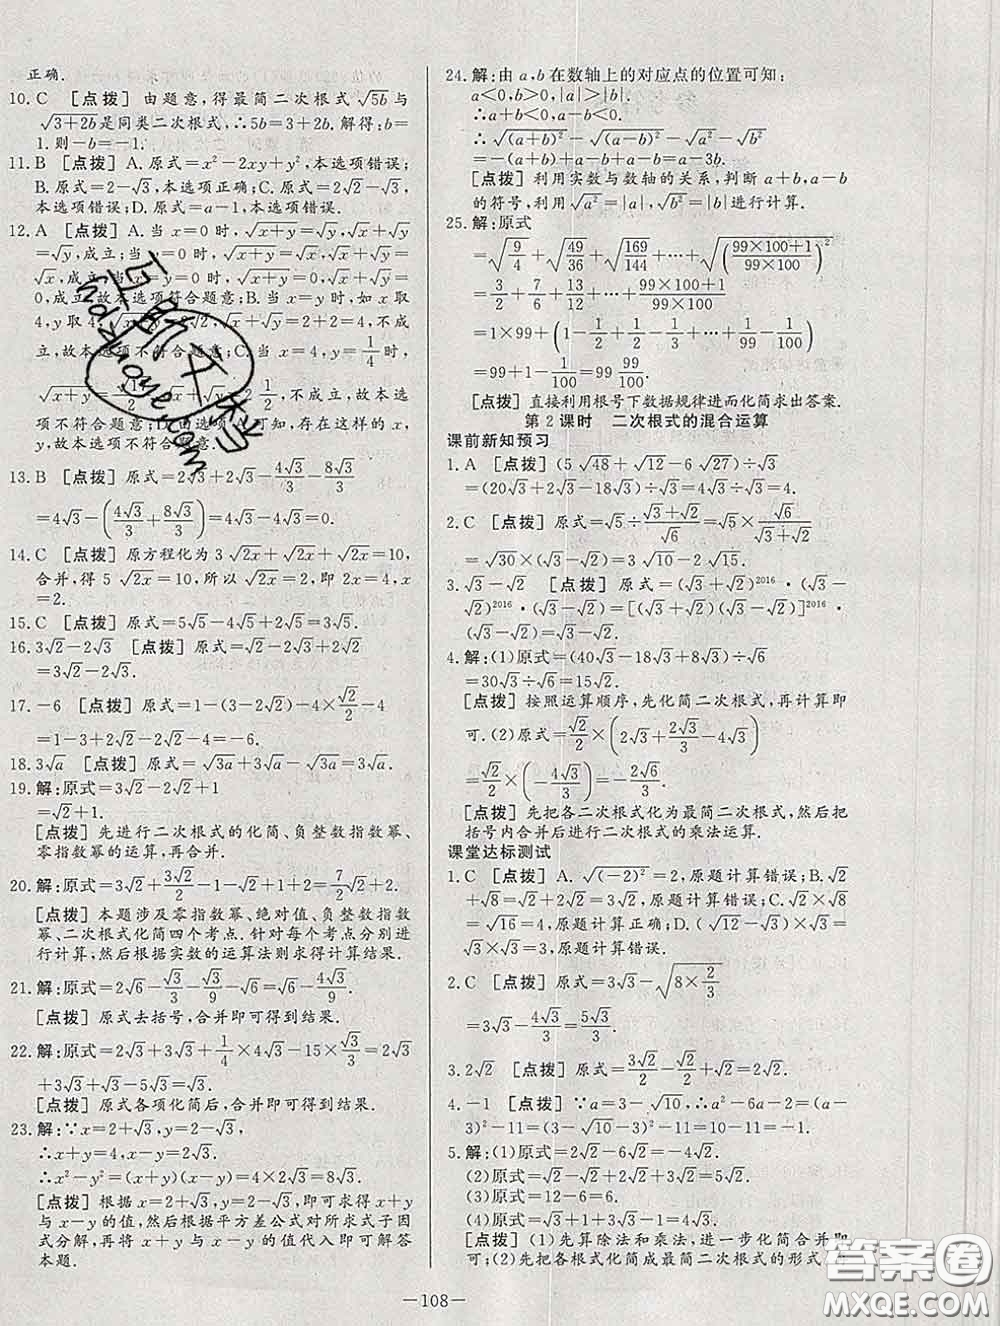 正确.
10. C [点拨] 由题意,得最简二次根式√5b与
√3+2b是同类二次根式,∴5b=3+2b.解得:b=
1.则-b=-1.
11. B [点拨] A.原式=x²-2xy+y²,本选项错误;
B.原式=2-√3,本选项正确;C.原式=2√2-√3,
本选项错误;D.原式=a-1,本选项错误.
12. A [点拨] A.当x=0时,√x+y=√y,√x+√y
=√y,成立;当y=0时,√x+y=√x,√x+√y=
√x,成立;当x=y=0时,√x+y=0,√x+√y=
0,成立,故本选项符合题意;B.当x=y时,如x取
4,y取4,√x+y=2√2,√x+√y=2+2=4,不成
立,故本选项不符合题意;C.当x=4,y=1/4时,
√x+y=√17/2,√x+√y=2 1/2,不成立,故本选
项不符合题意;D.由选项A可知,存在这样的x,
y,故本选项不符合题意.
13. B [点拨] 原式=2√3+2√3-4√3/3-8√3/3
=4√3-(4√3/3+8√3/3)=4√3-4√3=0.
14. C [点拨] 原方程化为3√2x+√2x+√2x=10,
合并,得5√2x=10,所以√2x=2,即2x=4,x
=2.
15. C [点拨] 原式=5√5-4√5+2√5=3√5.
16. 3√2-2√3 [点拨] 原式=√2-2√3+2√2
=3√2-2√3.
17. -6 [点拨] 原式=1-(3-2√2)-4×√2/2-4
=1-3+2√2-2√2-4=-6.
18. 3√3a [点拨] 原式=√3a+3√3a-√3a=3√3a.
19. 解:原式=3√2-2√2+1
=√2+1.
[点拨] 先进行二次根式的化简、负整数指数幂、
零指数幂的运算,再合并.
20. 解:原式=3√2+3√2/2-1-√2+1+2=7/2√2+2.
[点拨] 本题涉及零指数幂、绝对值、负整数指数
幂、二次根式化简四个考点.针对每个考点分别进
行计算,然后根据实数的运算法则求得计算结果.
21. 解:原式=2√6-√3/3-√3/9-√6=√6-4√3/9.
[点拨] 原式去括号,合并即可得到结果.
22. 解:原式=2√3+3√3+1/4×4√3-15×√3/3=2√3
+3√3+√3-5√3=√3.
[点拨] 原式各项化简后,合并即可得到结果.
23. 解:∵x=2+√3,y=2-√3,
∴x+y=4,x-y=2√3.
∴x²-y²=(x+y)(x-y)=4×2√3=8√3.
[点拨] 根据x=2+√3,y=2-√3,即可求得x+y
与x-y的值,然后根据平方差公式对所求式子因
式分解,再将x+y与x-y的值代入即可解答
本题.
24. 解:由a,b在数轴上的对应点的位置可知:
a<0,b>0,|a|>|b|.
∴a+b<0,a-b<0.
∴√(a+b)²-√(a-b)²-√a²-√b²
=-(a+b)+(a-b)+a-b=a-3b.
[点拨] 利用实数与数轴的关系,判断a+b,a-b
的符号,利用√a²=|a|,√b²=|b|进行计算.
25. 解:原式
=√9/4+√49/36+√169/144+…+√((99×100+1)/(99×100))²
=3/2+7/6+13/12+…+(99×100+1)/(99×100)
=1×99+(1-1/2+1/2-1/3+…+1/99-1/100)
=99+1-1/100=99 99/100.
[点拨] 直接利用根号下数据规律进而化简求出答案.
第2课时 二次根式的混合运算
课前新知预习
1. A [点拨] (5√48+√12-6√27)÷√3
=(20√3+2√3-18√3)÷√3=4√3÷√3=4.
2. C [点拨] 原式=√5÷(√3+√2)/√6=√5×√6/(√3+√2)
=√30×(√3-√2)=3√10-2√15.
3. √3-√2 [点拨] 原式=(√3+√2)²⁰¹⁶×(√3-
√2)²⁰¹⁶·(√3-√2)=[(√3+√2)(√3-√2)]²⁰¹⁶·
(√3-√2)=√3-√2.
4. 解:(1)原式=(40√3-18√3+8√3)÷√6
=30√3÷√6=15√2.
[点拨] 按照运算顺序,先化简二次根式,再计算即
可.(2)原式=√2/2×(2√3/3-4√3/3-2√3/3)=
√2/2×(-4√3/3)=-2√6/3.
[点拨] 先把各二次根式化为最简二次根式,然后把
括号内合并后进行二次根式的乘法运算.
课堂达标测试
1. C [点拨] A.√(-2)²=2,原题计算错误;B.√2
+√8=√2+2√2=3√2,原题计算错误;C.√2×√8
=√16=4,原题计算正确;D.√27÷√3=3√3÷
√3=3,原题计算错误.
2. C [点拨] 原式=3√3-√8×2/3
=3√3-4√3/3=5√3/3.
3. 2√2 [点拨] 原式=3√2/2+√2/2=√2+√2=2√2.
4. -1 [点拨] ∵a=3-√10,∴a²-6a-2=(a-
3)²-11=(3-√10-3)²-11=10-11=-1.
5. 解:(1)原式=2√2-6√2=-4√2.
(3)原式=12-6=6.
[点拨] (1)先算除法和乘法,进一步化简合并即
可;(2)先把各根式化简成最简二次根式的形式
—108—
答案圈
MXQE.COM